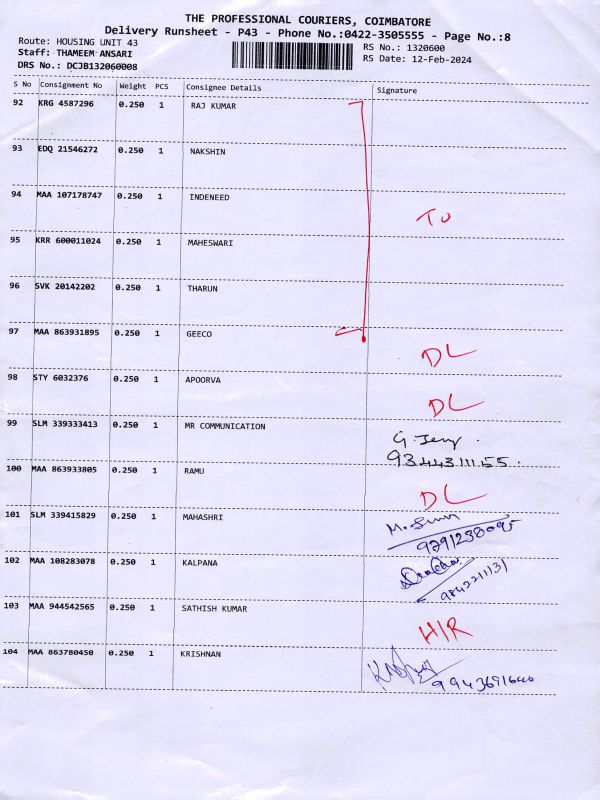 THE PROFESSIONAL COURIERS, COIMBATORE
Delivery Runsheet - P43 - Phone No.:0422-3505555 - Page No.:8
Route: HOUSING UNIT 43
RS No.: 1320600
Staff: THAMEEM ANSARI
RS Date: 12-Feb-2024
DRS No.: DCJB132060008
S No Consignment No Weight PCS Consignee Details Signature
92 KRG 4587296 0.250 1 RAJ KUMAR
93 EDQ 21546272 0.250 1 NAKSHIN
94 MAA 107178747 0.250 1 INDENEED
TU
95 KRR 600011024 0.250 1 MAHESWARI
96 SVK 20142202 0.250 1 THARUN
97 MAA 863931895 0.250 1 GEECO
DL
98 STY 6032376 0.250 1 APOORVA
DL
99 SLM 339333413 0.250 1 MR COMMUNICATION
9344311155.
100 MAA 863933805 0.250 1 RAMU
DL
101 SLM 339415829 0.250 1 MAHASHRI
9791238095
102 MAA 108283078 0.250 1 KALPANA
9842211131
103 MAA 944542565 0.250 1 SATHISH KUMAR
H/R
104 MAA 863780450 0.250 1 KRISHNAN
9943691640